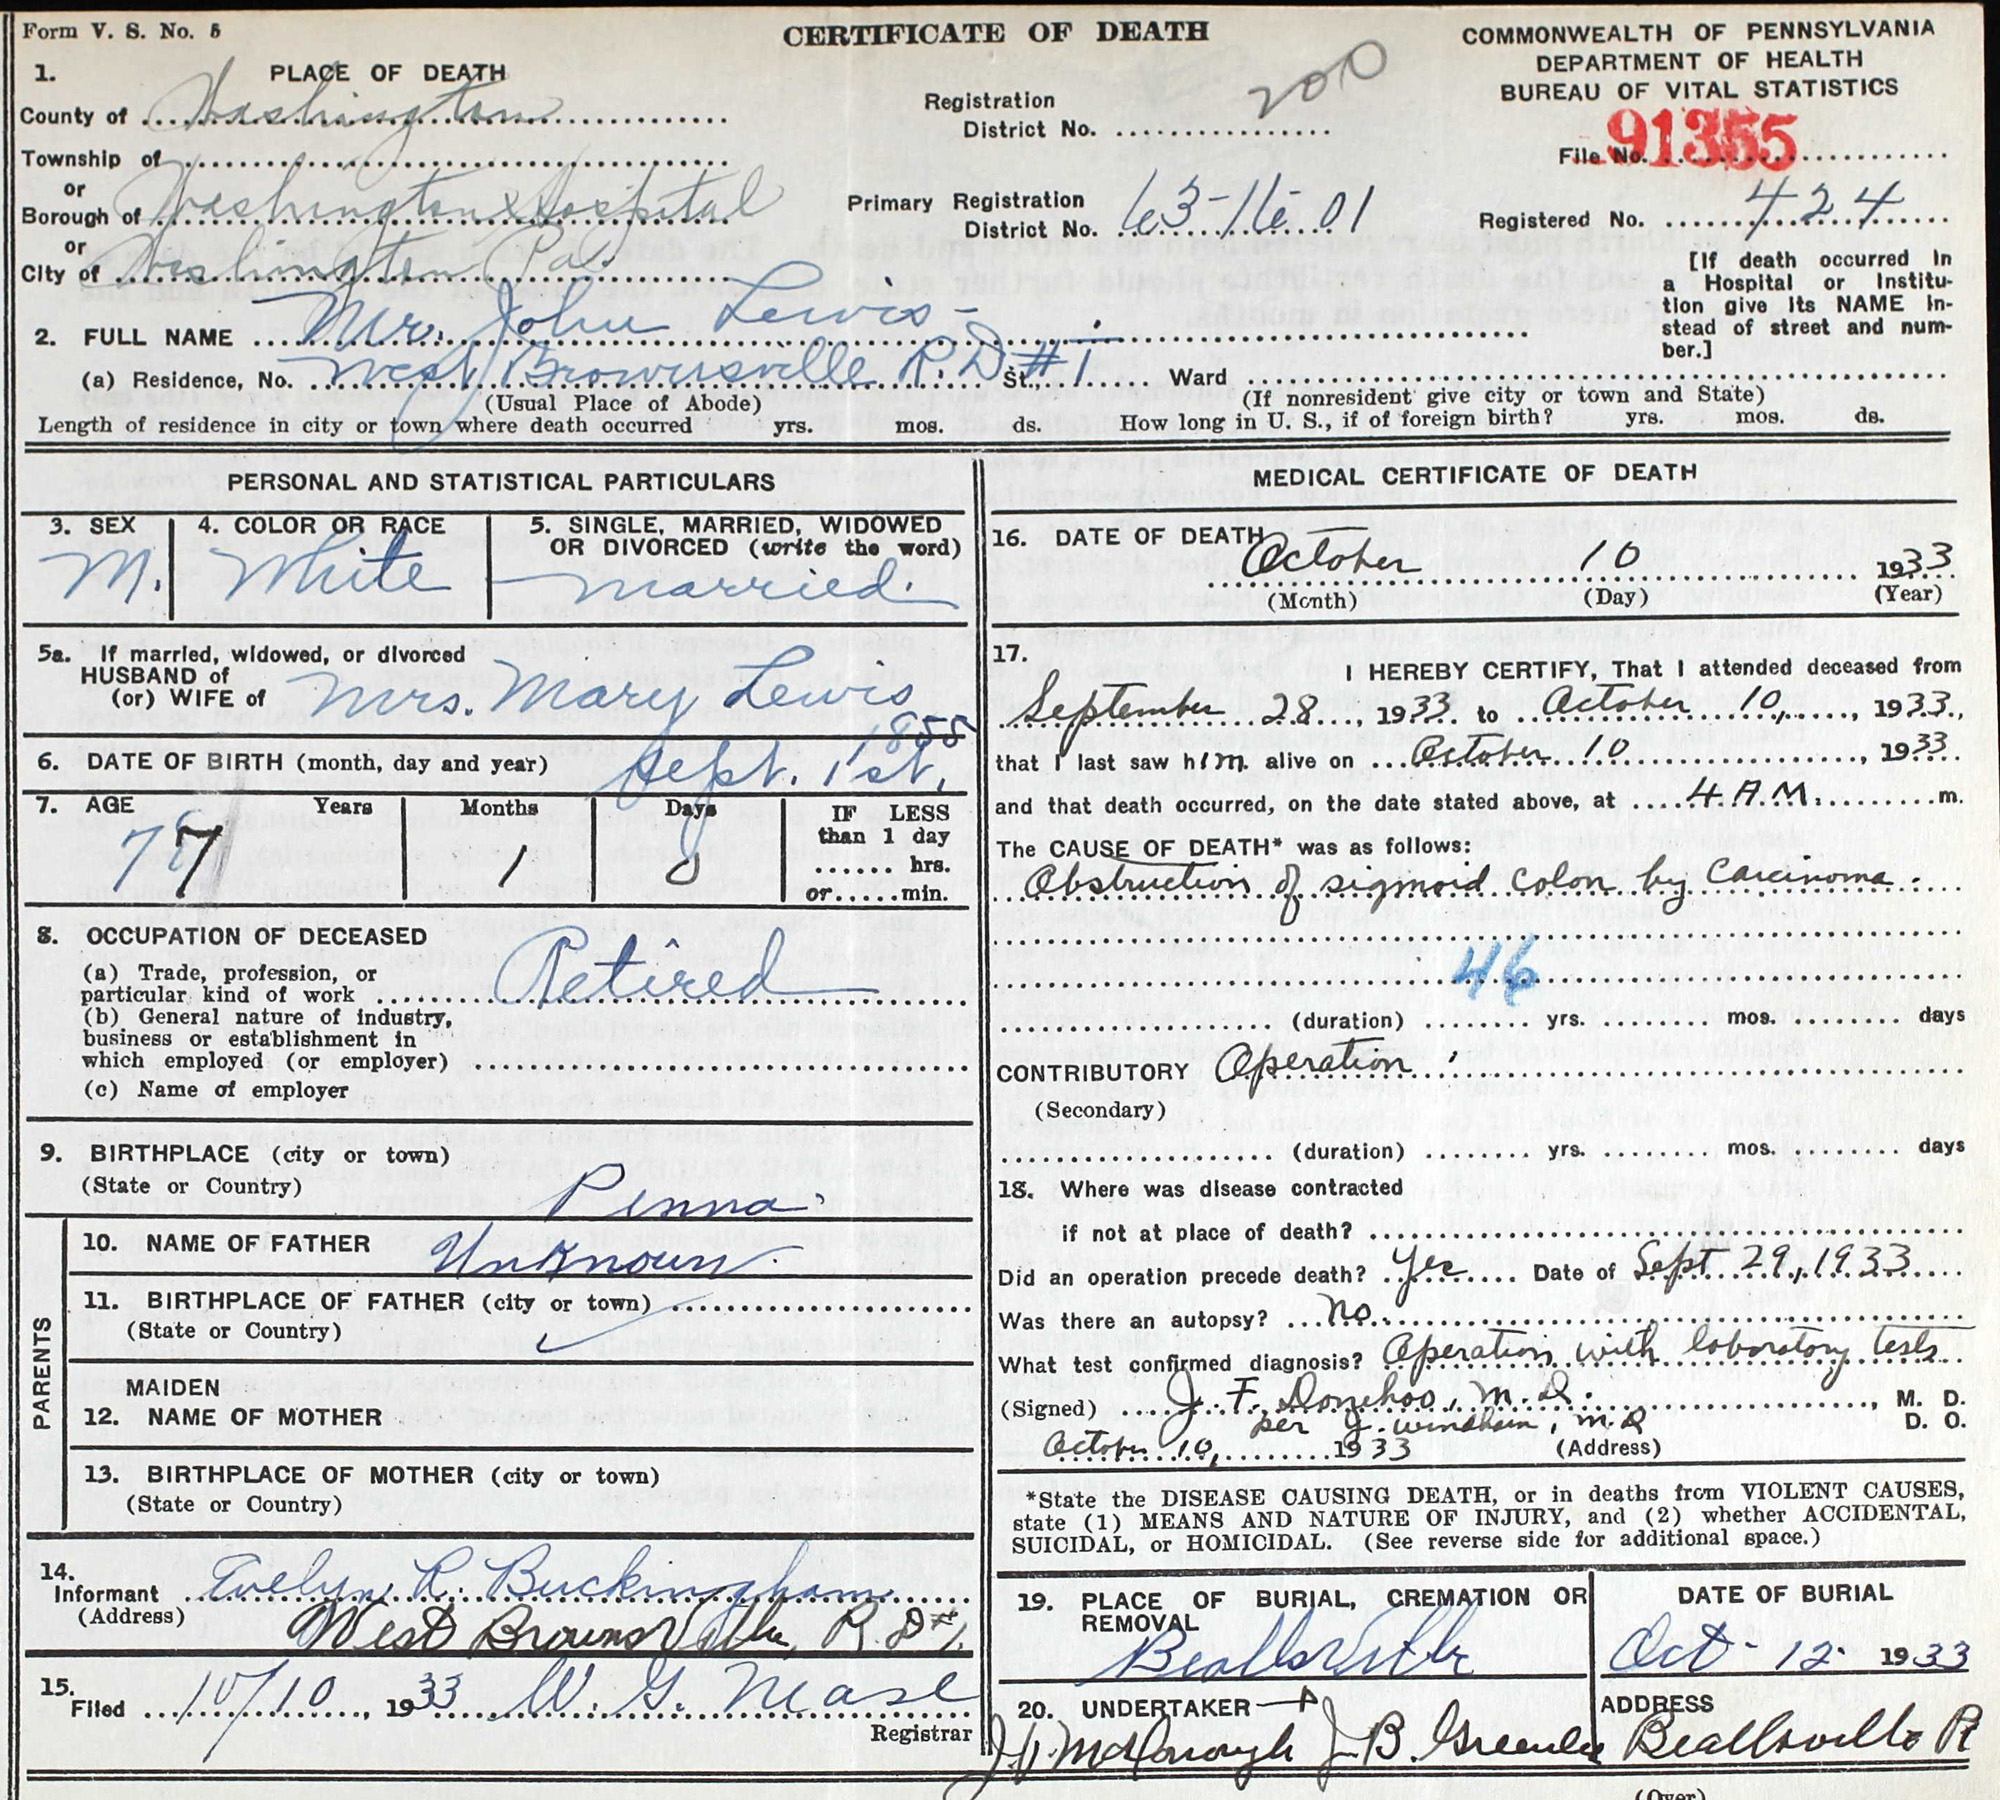 Form V. S. No. 5
CERTIFICATE OF DEATH
COMMONWEALTH OF PENNSYLVANIA
DEPARTMENT OF HEALTH
BUREAU OF VITAL STATISTICS
1. PLACE OF DEATH
County of Washington
Township of
or
Borough of Washington Hospital
or
City of Washington Pa.
Registration District No. 200
Primary Registration District No. 63-16-01
File No. 91355
Registered No. 424
[If death occurred in
a Hospital or Institu-
tion give its NAME in-
stead of street and num-
ber.]
2. FULL NAME Mr. John Lewis
(a) Residence, No. West Brownsville R.D. #1 St., Ward
(Usual Place of Abode) (If nonresident give city or town and State)
Length of residence in city or town where death occurred yrs. mos. ds. How long in U. S., if of foreign birth? yrs. mos. ds.
PERSONAL AND STATISTICAL PARTICULARS
3. SEX M.
4. COLOR OR RACE White
5. SINGLE, MARRIED, WIDOWED
OR DIVORCED (write the word)
Married.
5a. If married, widowed, or divorced
HUSBAND of
(or) WIFE of Mrs. Mary Lewis
6. DATE OF BIRTH (month, day and year) Sept. 1st, 1855
7. AGE Years Months Days
IF LESS
than 1 day
hrs.
or min.
77 1
8. OCCUPATION OF DECEASED
(a) Trade, profession, or
particular kind of work Retired
(b) General nature of industry,
business or establishment in
which employed (or employer)
(c) Name of employer
9. BIRTHPLACE (city or town)
(State or Country) Penna.
PARENTS
10. NAME OF FATHER Unknown
11. BIRTHPLACE OF FATHER (city or town)
(State or Country)
MAIDEN
12. NAME OF MOTHER
13. BIRTHPLACE OF MOTHER (city or town)
(State or Country)
14.
Informant Evelyn R. Buckingham
(Address) West Brownsville, R.D #1.
15.
Filed 10/10, 1933 W. G. Nease
Registrar
MEDICAL CERTIFICATE OF DEATH
16. DATE OF DEATH October 10 1933
(Month) (Day) (Year)
17.
I HEREBY CERTIFY, That I attended deceased from
September 28, 1933 to October 10, 1933,
that I last saw him alive on October 10, 1933
and that death occurred, on the date stated above, at 4 A.M. m.
The CAUSE OF DEATH* was as follows:
Obstruction of sigmoid colon by carcinoma.
46
(duration) yrs. mos. days
CONTRIBUTORY Operation
(Secondary)
(duration) yrs. mos. days
18. Where was disease contracted
if not at place of death?
Did an operation precede death? Yes Date of Sept 29, 1933
Was there an autopsy? No.
What test confirmed diagnosis? Operation with laboratory tests
(Signed) J. F. Donehoo, M.D., M. D.
per J. Windham, M.D. D. O.
October 10, 1933 (Address)
*State the DISEASE CAUSING DEATH, or in deaths from VIOLENT CAUSES,
state (1) MEANS AND NATURE OF INJURY, and (2) whether ACCIDENTAL,
SUICIDAL, or HOMICIDAL. (See reverse side for additional space.)
19. PLACE OF BURIAL, CREMATION OR
REMOVAL
Beallsville
DATE OF BURIAL
Oct - 12. 1933
20. UNDERTAKER
J. B. Greenlee
ADDRESS
Beallsville Pa
(Over)